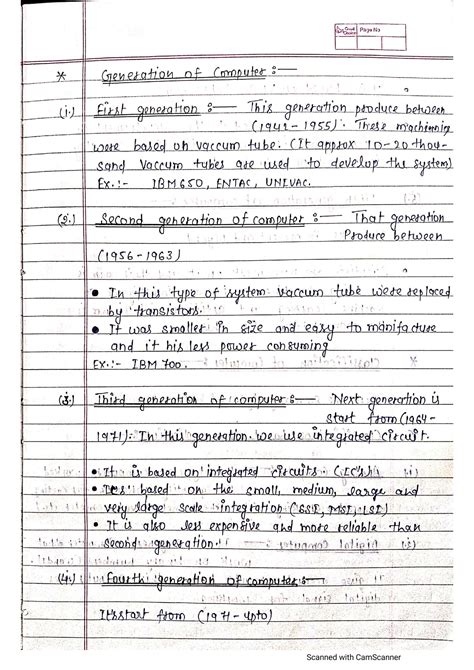 Page No
* Generation of Computer :—
(1.) First generation :— This generation produce between
(1942 - 1955). These machinning
were based on vaccum tube. (It approx 10-20 thou-
sand vaccum tubes are used to develop the system)
Ex.:- IBM 650, ENTAC, UNIVAC.
(2.) Second generation of computer :— That generation
Produce between
(1956 - 1963)
• In this type of system vaccum tube were replaced
by transistors.
• It was smaller in size and easy to manifacture
and it his less power consuming
Ex.:- IBM 700.
(3.) Third generation of computer :— Next generation is
start from (1964-
1971). In this generation we use integrated circuit.
• It is based on integrated circuits. (IC's)
• It's based on the small, medium, large and
very large scale integration (SSI, MSI, LSI)
• It is also less expensive and more reliable than
second generation.
(4.) Fourth generation of computer :—
It's start from (1971 - upto)
Scanned with CamScanner